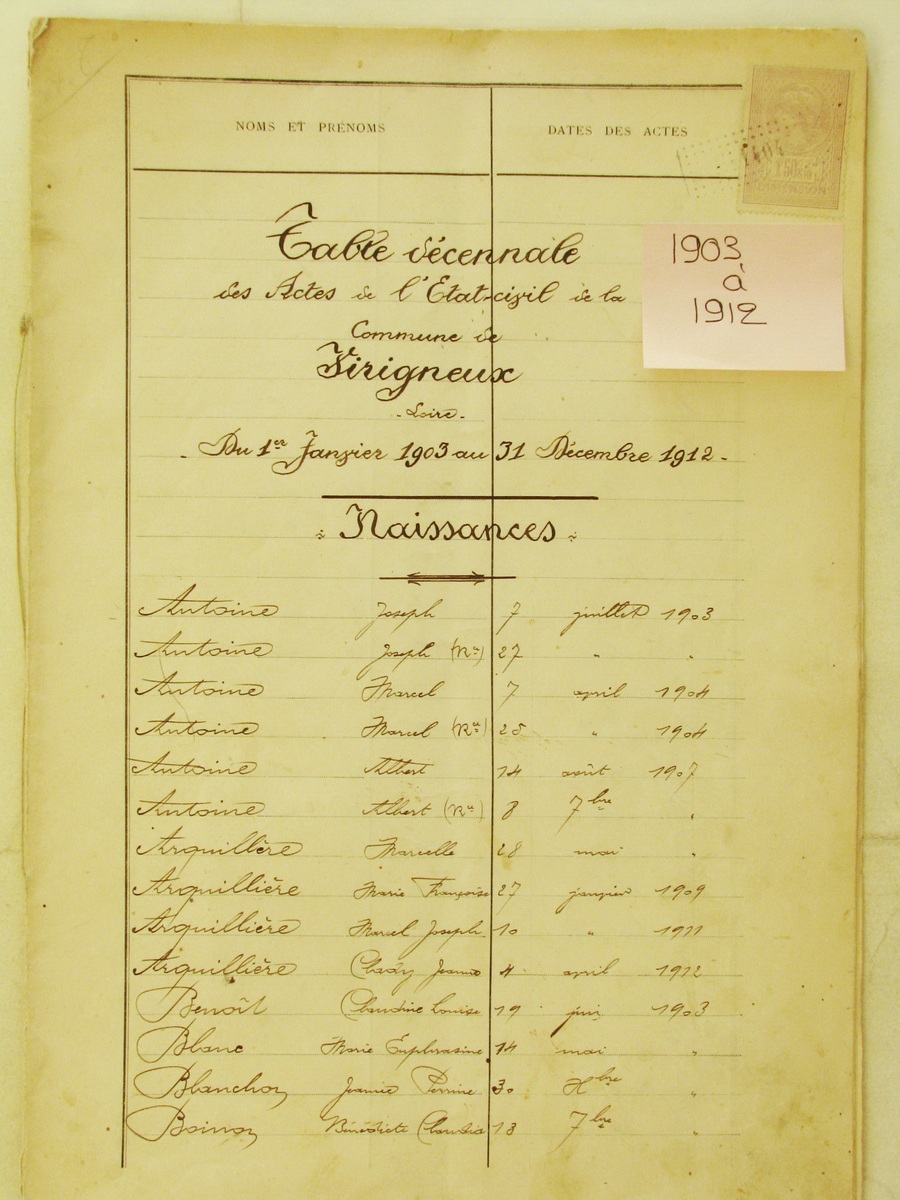 NOMS ET PRÉNOMS DATES DES ACTES
Table décennale
des Actes de l'Etat-civil de la
Commune de
Virigneux
- Loire -
- Du 1er Janvier 1903 au 31 Décembre 1912 -
1903
à
1912
Naissances
Antoine Joseph 7 juillet 1903
Antoine Joseph 27 " "
Antoine Marcel 7 avril 1904
Antoine Marcel 28 " 1904
Antoine Albert 14 août 1907
Antoine Albert 8 7bre "
Arquillère Marcelle 28 mai "
Arquillière Marie Françoise 27 janvier 1909
Arquillière Marcel Joseph 10 " 1911
Arquillière 4 avril 1912
Benoît Claudine Louise 19 juin 1903
Blanc Marie Euphrasine 14 mai "
Blanchon Jeanne Perrine 30 Xbre "
Boinon Bénédicte Claudia 18 7bre "